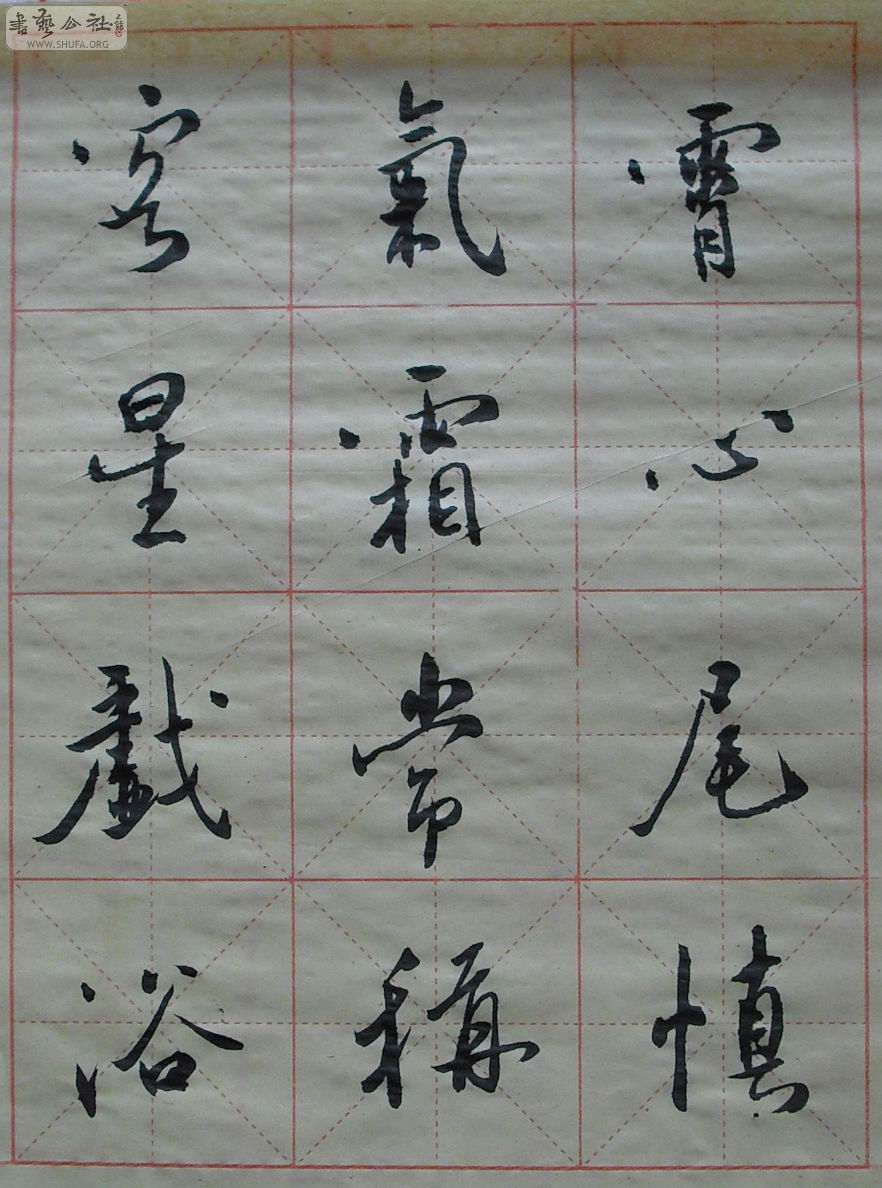 書藝公社
WWW.SHUFA.ORG
霄心尾慎
氣霜常稱
客星戲浴